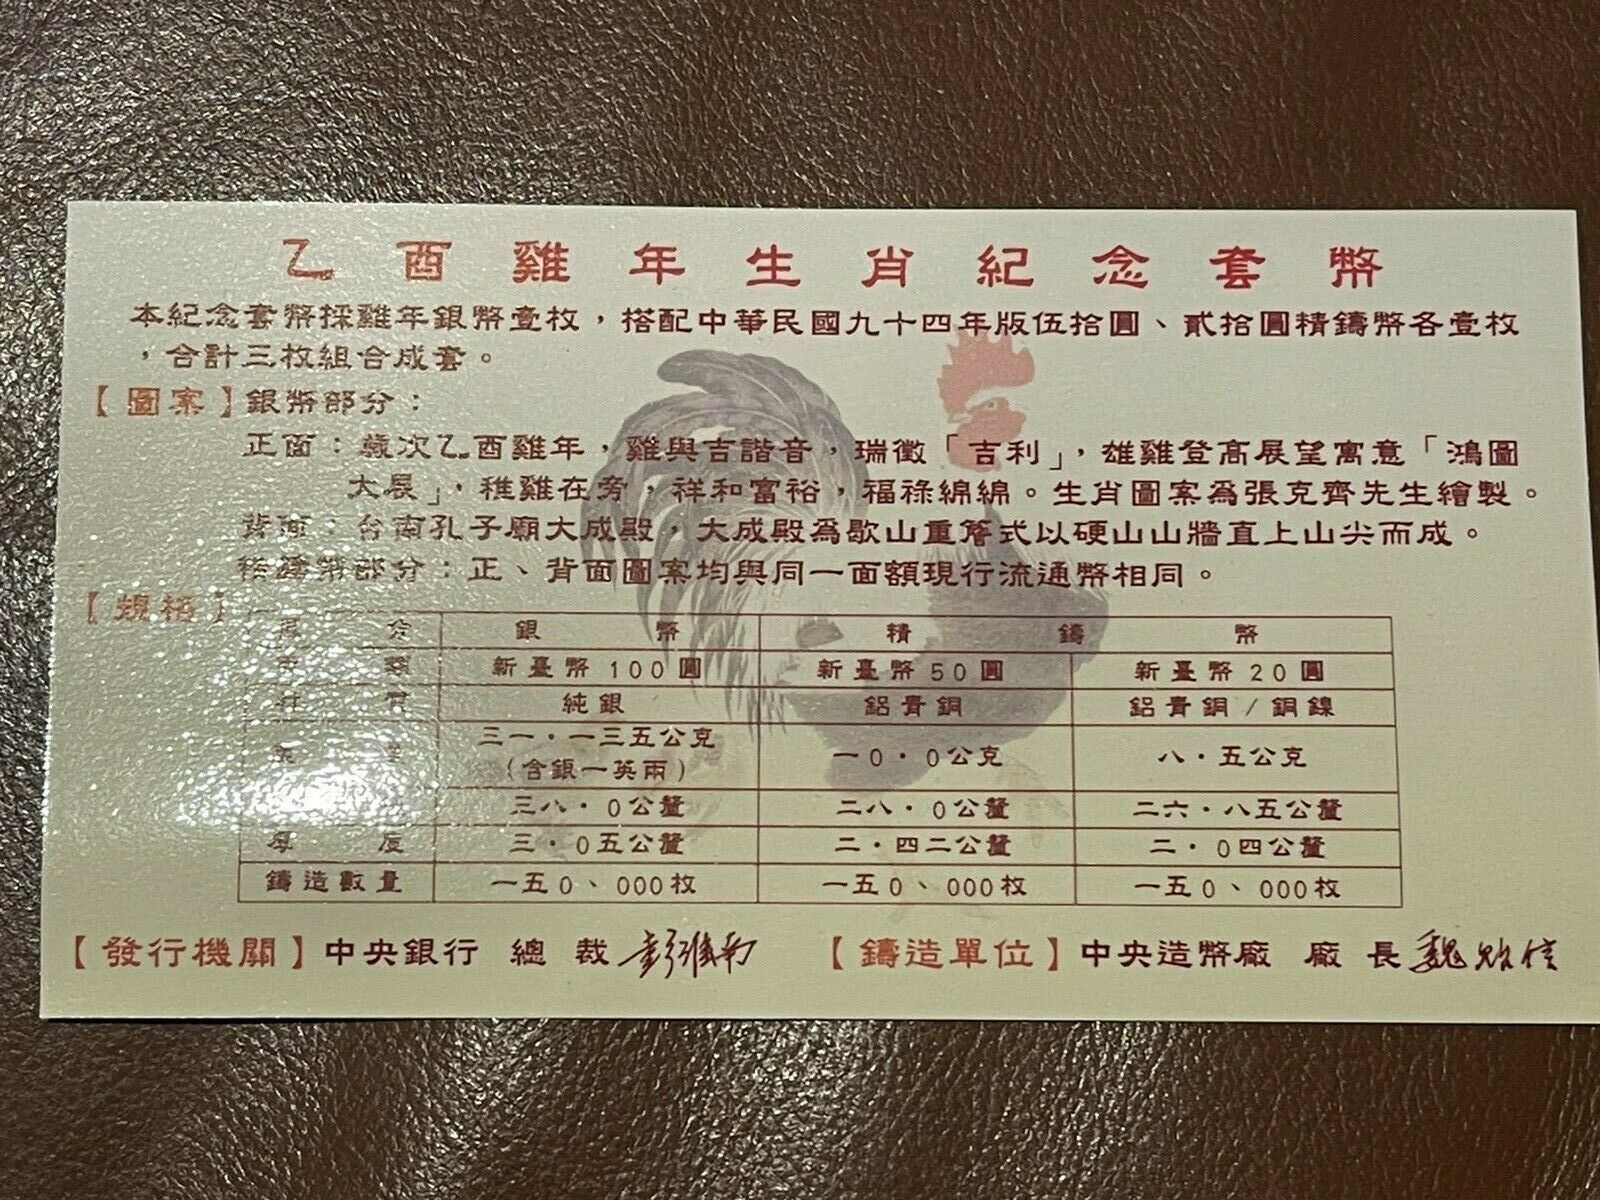 乙酉雞年生肖紀念套幣
本紀念套幣採雞年銀幣壹枚，搭配中華民國九十四年版伍拾圓、貳拾圓精鑄幣各壹枚
，合計三枚組合成套。
【圖案】銀幣部分：
正面：歲次乙酉雞年，雞與吉諧音，瑞徵「吉利」，雄雞登高展望寓意「鴻圖
大展」，稚雞在旁，祥和富裕，福祿綿綿。生肖圖案為張克齊先生繪製。
背面：台南孔子廟大成殿，大成殿為歇山重簷式以硬山山牆直上山尖而成。
精鑄幣部分：正、背面圖案均與同一面額現行流通幣相同。
【規格】
區分 銀幣 精鑄幣
類 新臺幣100圓 新臺幣50圓 新臺幣20圓
材質 純銀 鋁青銅 鋁青銅/銅鎳
三一．一三五公克(含銀一英兩) 一0．0公克 八．五公克
三八．0公釐 二八．0公釐 二六．八五公釐
厚度 三．0五公釐 二．四二公釐 二．0四公釐
鑄造數量 一五0、000枚 一五0、000枚 一五0、000枚
【發行機關】中央銀行 總裁 彭淮南 【鑄造單位】中央造幣廠 廠長 魏